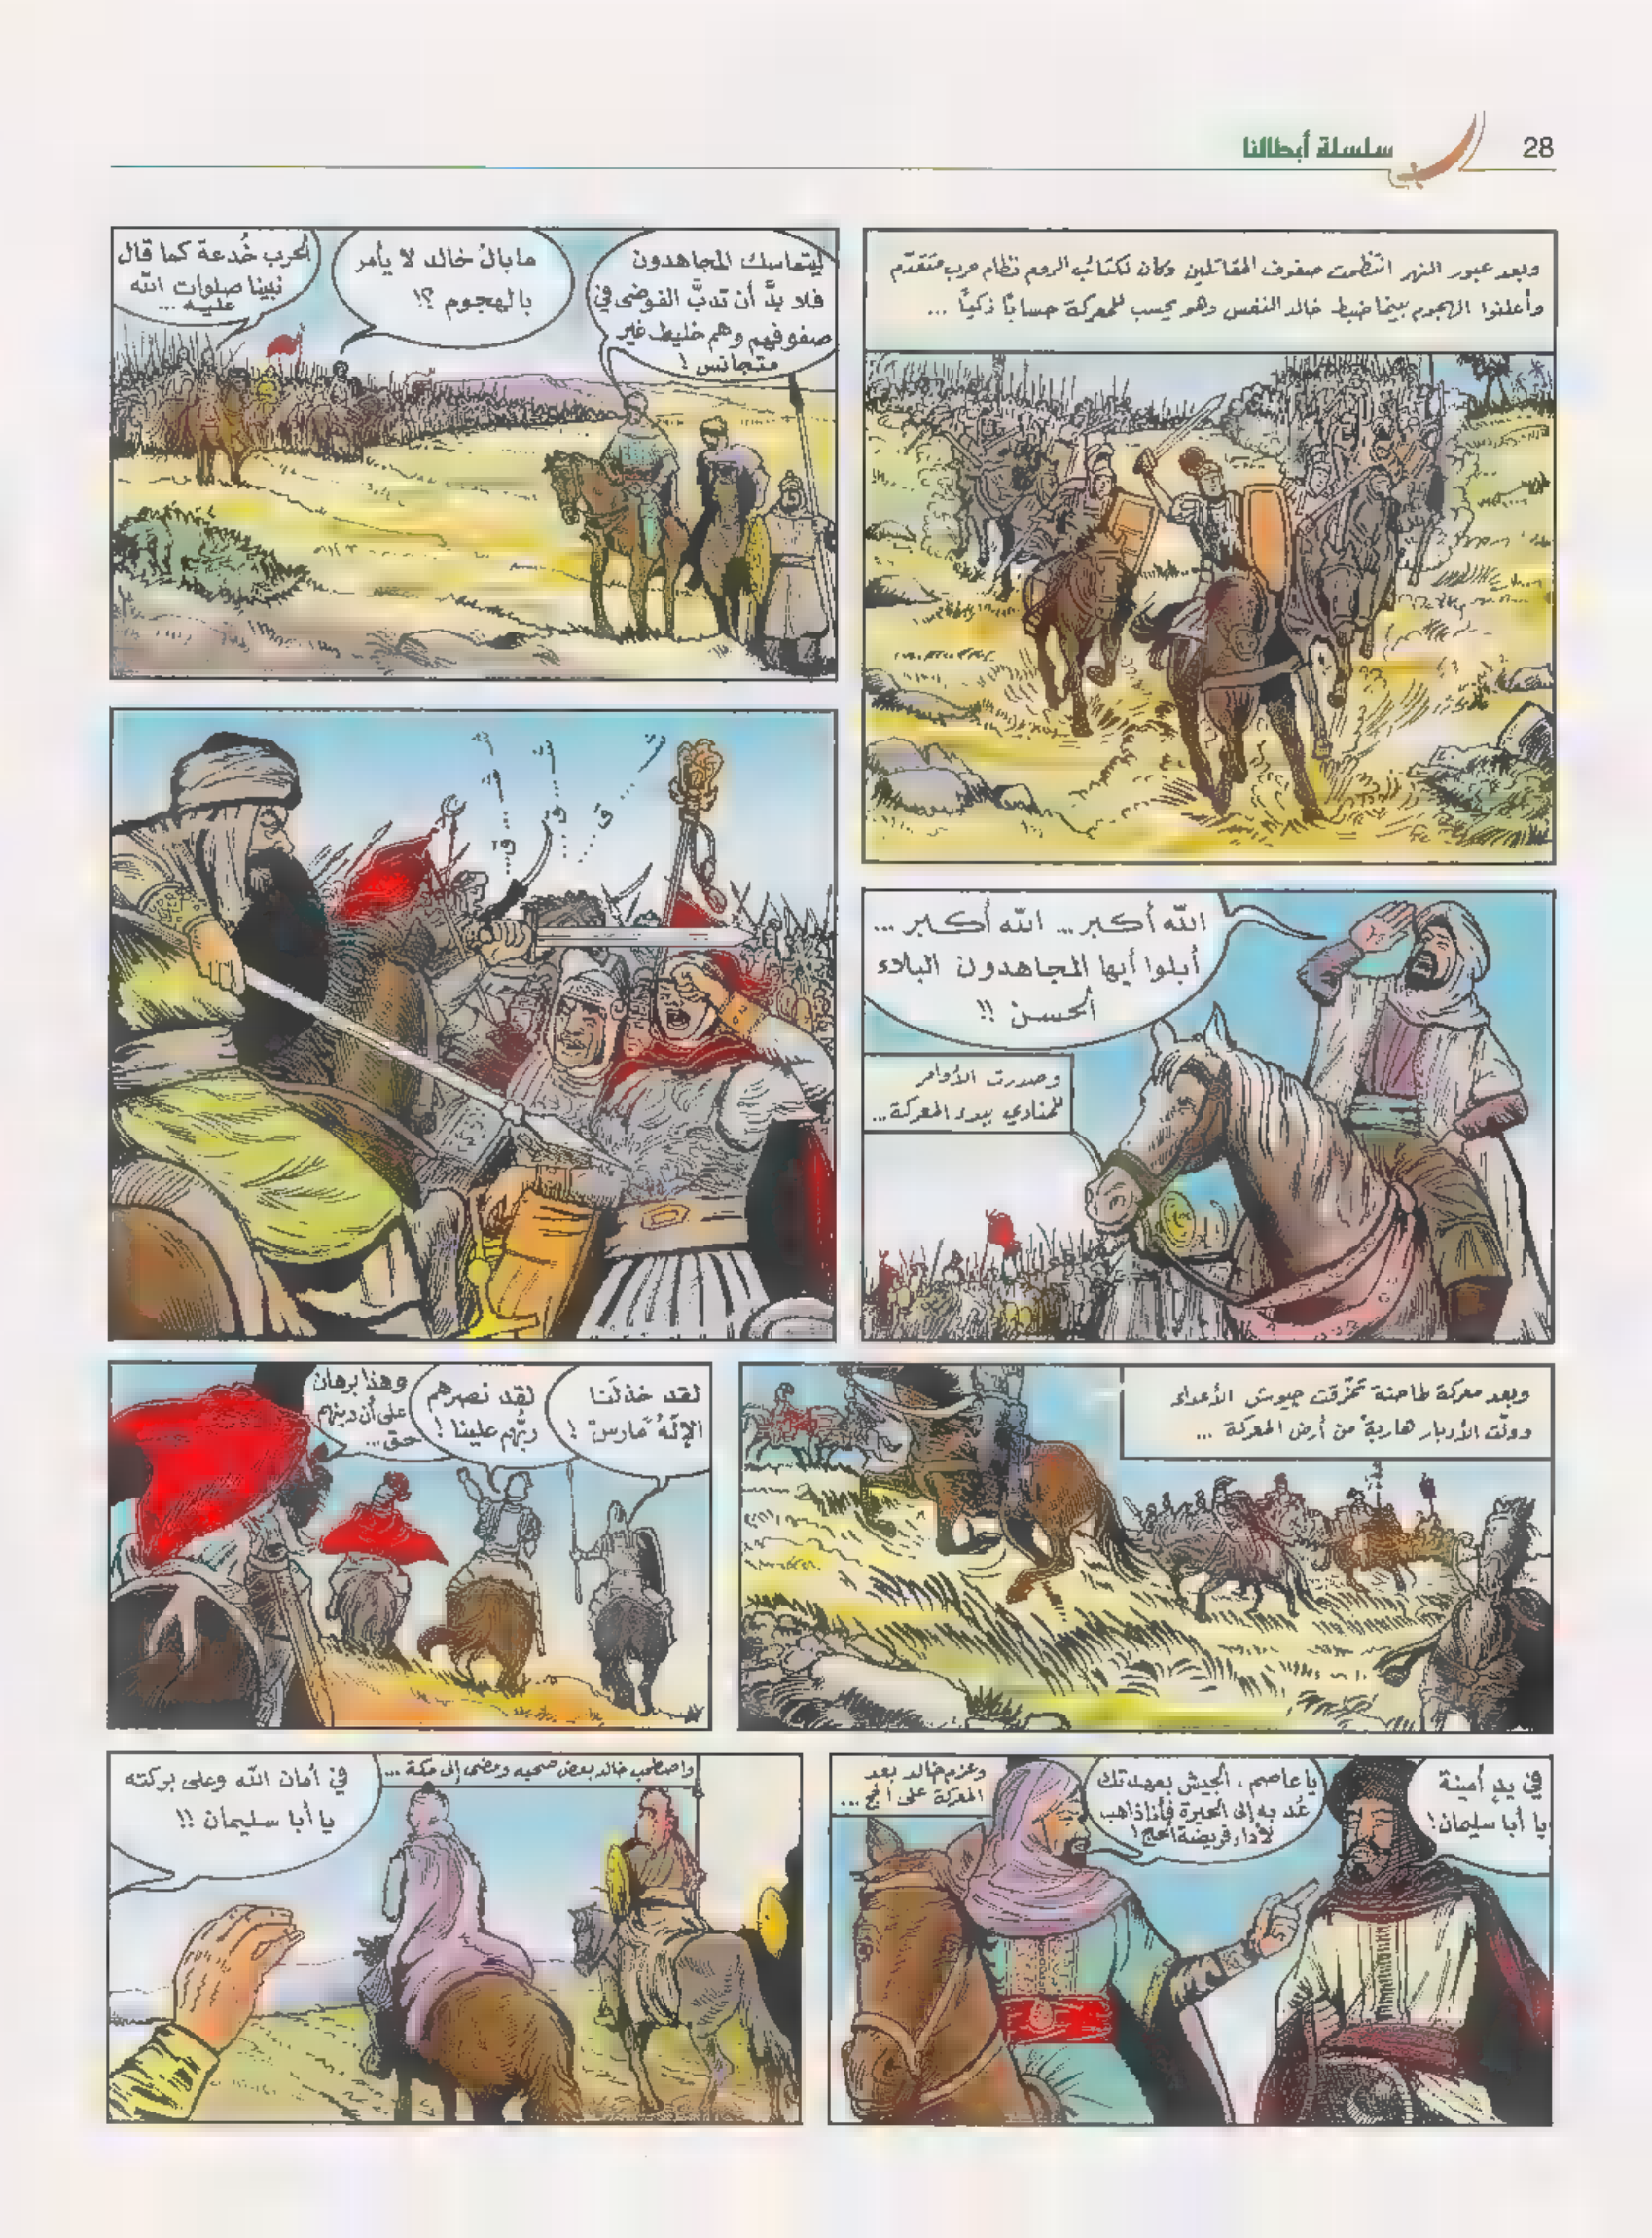 28
سلسلة أبطالنا
وبعد عبور النهر انتظمت صفوف المقاتلين وكان لكتائب الروم نظام حرب متقدّم
وأعلنوا الهجوم بينما ضبط خالد النفس وهو يحسب للمعركة حسابًا ذكيًا ...
ليتماسك المجاهدون
فلا بدَّ أن تدبَّ الفوضى في
صفوفهم وهم خليط غير
متجانس !
مابالُ خالد لا يأمر
بالهجوم ؟!
الحرب خُدعة كما قال
نبينا صلوات الله
عليه ...
الله أكبر ... الله أكبر ...
أبلوا أيها المجاهدون البلاء
الحسن !!
وصدرت الأوامر
للمنادي ببدء المعركة ...
شـ ... ـق
شـ ... ـق ...
شـ ... شـ ... ـق ...
وبعد معركة طاحنة تمزّقت جيوش الأعداء
وولّت الأدبار هاربةً من أرض المعركة ...
لقد خذلَنا
الإلَهُ مَارسْ !
لقد نصرهم
ربُّهم علينا !
وهذا برهان
على أن دينهم
حق ...
في يدٍ أمينة
يا أبا سليمان !
يا عاصم ، الجيش بعهدتك
عُد به إلى الحيرة فأنا ذاهب
لأداء فريضة الحج !
وعزم خالد بعد
المعركة على الحج ...
واصطحب خالد بعض صحبه ومضى إلى مكة ...
في أمان الله وعلى بركته
يا أبا سليمان !!